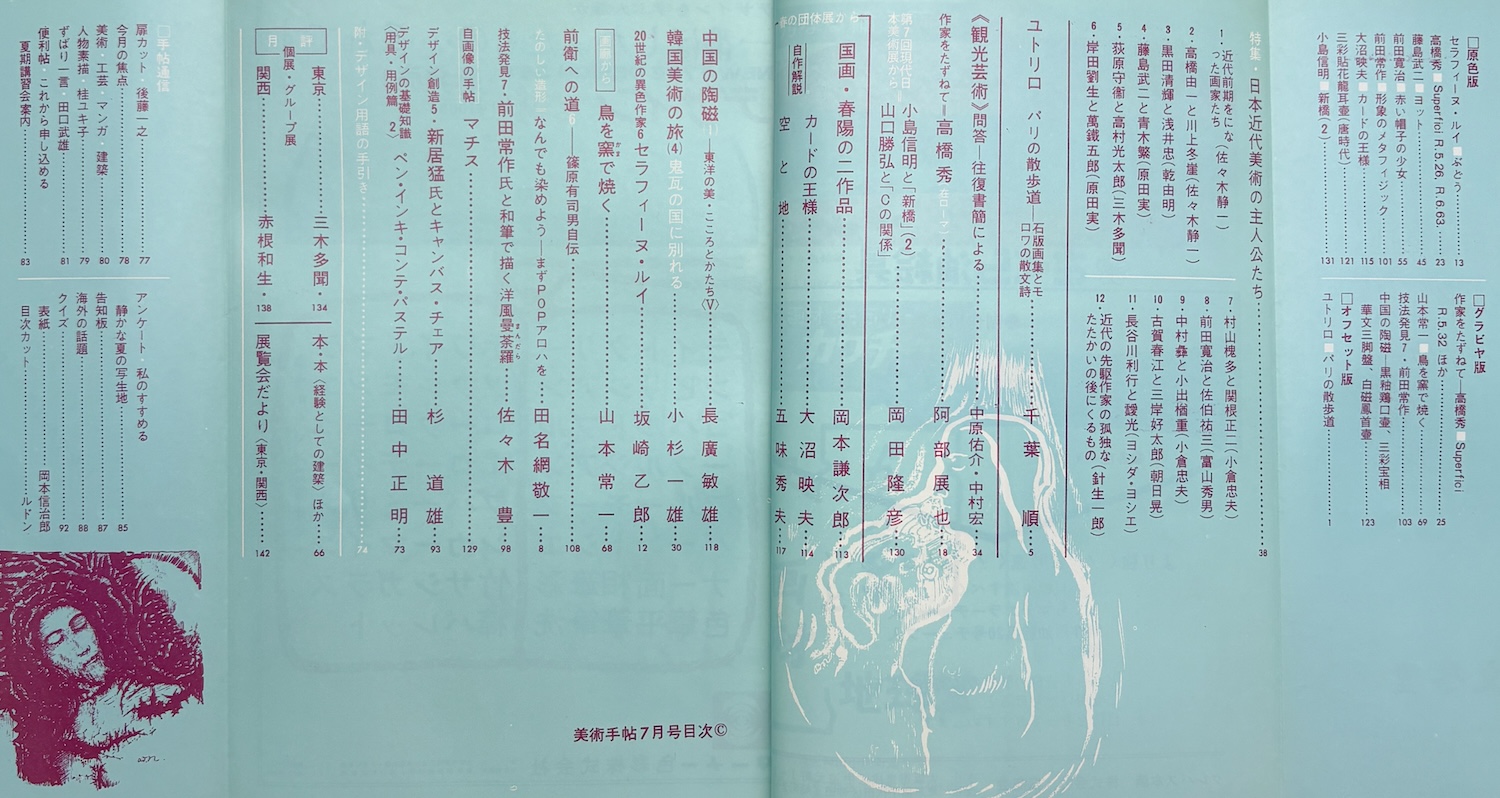 □原色版
セラフィーヌ・ルイ■ぶどう……13
高橋秀■Superfici R.5.26, R.6.63.……23
藤島武二■ヨット……45
前田寛治■赤い帽子の少女……55
前田常作■形象のメタフィジック……101
大沼映夫■カードの王様……115
三彩貼花龍耳壷〈唐時代〉……121
小島信明■新橋(2)……131
□グラビヤ版
作家をたずねて—高橋秀■Superfici
R.5.32 ほか……25
山本常一■鳥を窯で焼く……69
技法発見7・前田常作……103
中国の陶磁—黒釉鶏口壷、三彩宝相
華文三脚盤、白磁鳳首壷……123
□オフセット版
ユトリロ■パリの散歩道……1
特集・日本近代美術の主人公たち……38
1・近代前期をにな
った画家たち(佐々木静一)
2・高橋由一と川上冬崖(佐々木静一)
3・黒田清輝と浅井忠(乾由明)
4・藤島武二と青木繁(原田実)
5・荻原守衞と高村光太郎(三木多聞)
6・岸田劉生と萬鐵五郎(原田実)
7・村山槐多と関根正二(小倉忠夫)
8・前田寛治と佐伯祐三(富山秀男)
9・中村彝と小出楢重(小倉忠夫)
10・古賀春江と三岸好太郎(朝日晃)
11・長谷川利行と靉光(ヨシダ・ヨシエ)
12・近代の先駆作家の孤独な
たたかいの後にくるもの(針生一郎)
ユトリロ パリの散歩道—石版画集とモ
ロワの散文詩……千葉順 5
《観光芸術》問答—往復書簡による……中原佑介・中村宏 34
作家をたずねて=高橋秀(在ローマ)……阿部展也 18
春の団体展から
第7回現代日
本美術展から=
小島信明と「新橋」(2)
山口勝弘と「Cの関係」……岡田隆彦 130
国画・春陽の二作品……岡本謙次郎 113
自作解説
カードの王様……大沼映夫 114
空と地……五味秀夫 117
中国の陶磁(1)—東洋の美・こころとかたち〈V〉……長廣敏雄 118
韓国美術の旅(4) 鬼瓦の国に別れる……小杉一雄 30
20世紀の異色作家6 セラフィーヌ・ルイ……坂崎乙郎 12
画廊から 鳥を窯で焼く……山本常一 68
かま
前衛への道6—篠原有司男自伝……108
たのしい造形 なんでも染めよう—まずPOPアロハを……田名網敬一 8
技法発見7・前田常作氏と和筆で描く洋風曼荼羅……佐々木豊 98
まんだら
自画像の手帖 マチス……129
デザイン創造5・新居猛氏とキャンバス・チェア……杉道雄 93
デザインの基礎知識
〈用具・用例篇 2〉 ペン・インキ・コンテ・パステル……田中正明 73
附・デザイン用語の手引き……74
月評
個展・グループ展
東京……三木多聞・134
関西……赤根和生・138
本・本〈経験としての建築〉ほか……66
展覧会だより〈東京・関西〉……142
□手帖通信
扉カット・後藤一之……77
今月の焦点……78
美術・工芸・マンガ・建築……80
人物素描・桂ユキ子……79
ずばり一言・田口武雄……81
便利帖・これから申し込める
夏期講習会案内……83
アンケート・私のすすめる
静かな夏の写生地……85
告知板……87
海外の話題……88
クイズ……92
表紙……岡本信治郎
目次カット……ルドン
美術手帖7月号目次©